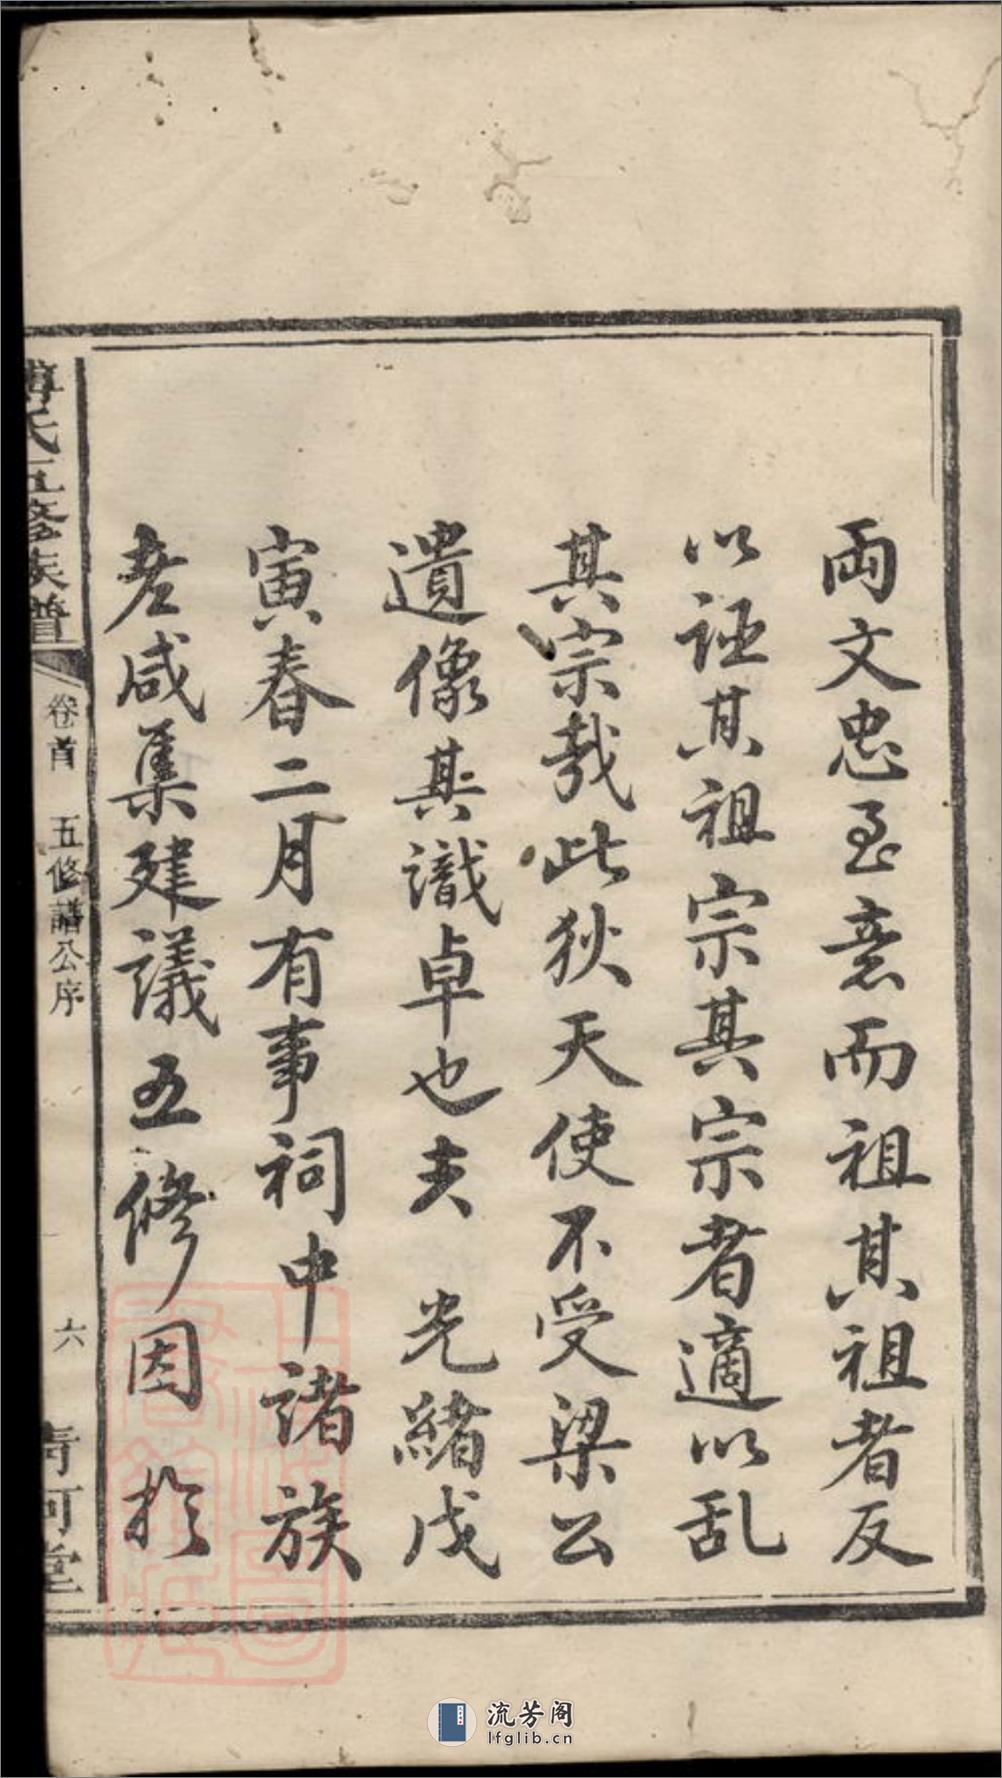 両文忠至意而祖其祖者反
以誣其祖宗其宗者適以乱
其宗哉此狄天使不受梁公
遺像其識卓也夫 光緒戊
寅春二月有事祠中諸族
老咸集建議五修因於
氏五修族譜
卷首 五修譜公序
六
清河堂
流芳阁
lfglib.cn